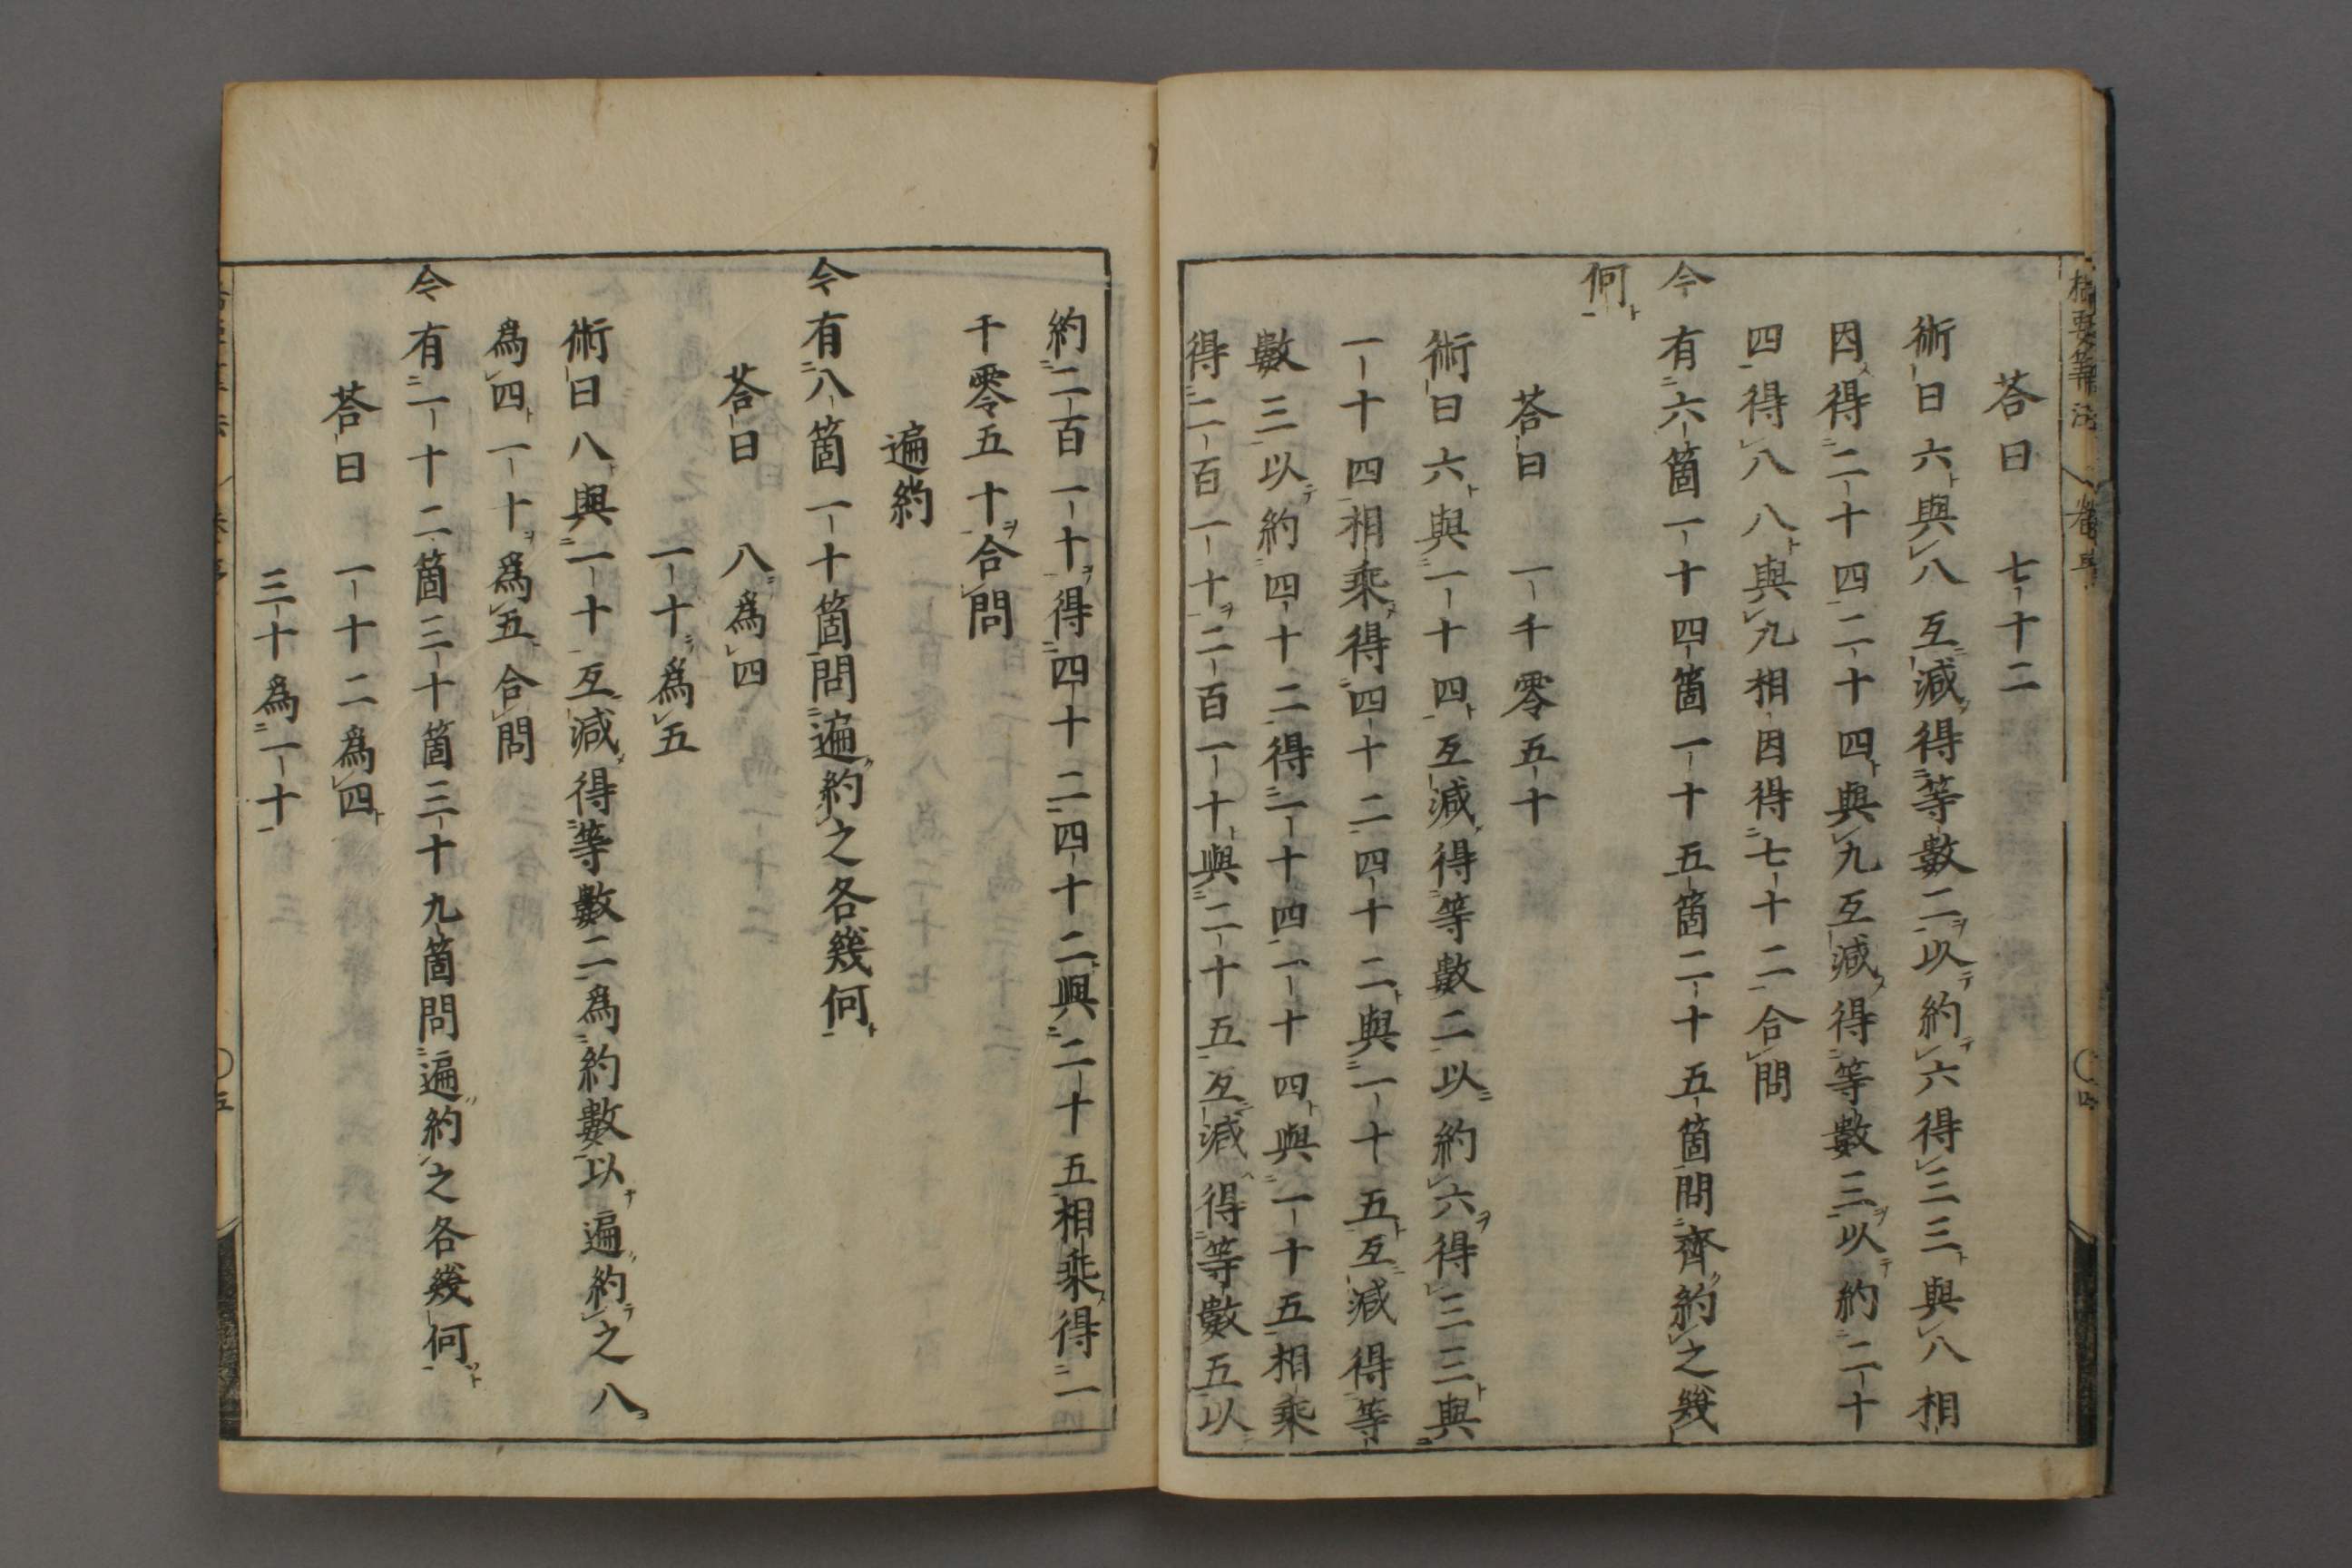 荅曰　七十二
術曰六與八互減得等數二以約六得三三與八相
因得二十四二十四與九互減得等數三以約二十
四得八八與九相因得七十二合問
今有六箇一十四箇一十五箇二十五箇問齊約之幾
何
荅曰　一千零五十
術曰六與一十四互減得等數二以約六得三三與
一十四相乘得四十二四十二與一十五互減得等
數三以約四十二得一十四一十四與一十五相乘
得二百一十二百一十與二十五互減得等數五以
約二百一十得四十二四十二與二十五相乘得一
千零五十合問
遍約
今有八箇一十箇問遍約之各幾何
荅曰　八爲四
一十爲五
術曰八與一十互減得等數二爲約數以遍約之八
爲四一十爲五合問
今有一十二箇三十箇三十九箇問遍約之各幾何
荅曰　一十二爲四
三十爲一十